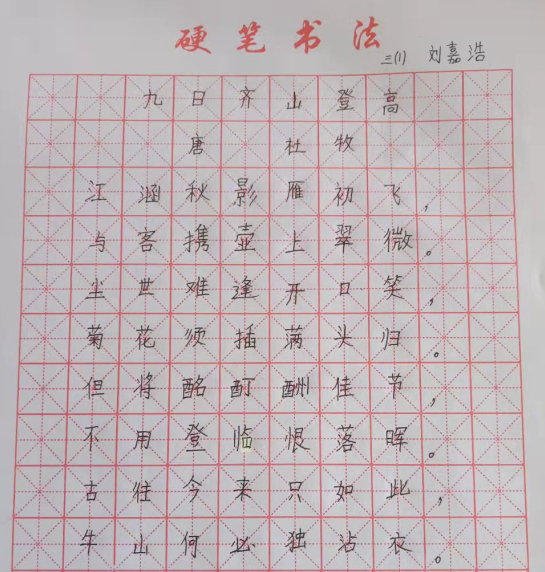 硬笔书法
三(1) 刘嘉浩
九日齐山登高
唐 杜牧
江涵秋影雁初飞，
与客携壶上翠微。
尘世难逢开口笑，
菊花须插满头归。
但将酩酊酬佳节，
不用登临恨落晖。
古往今来只如此，
牛山何必独沾衣。